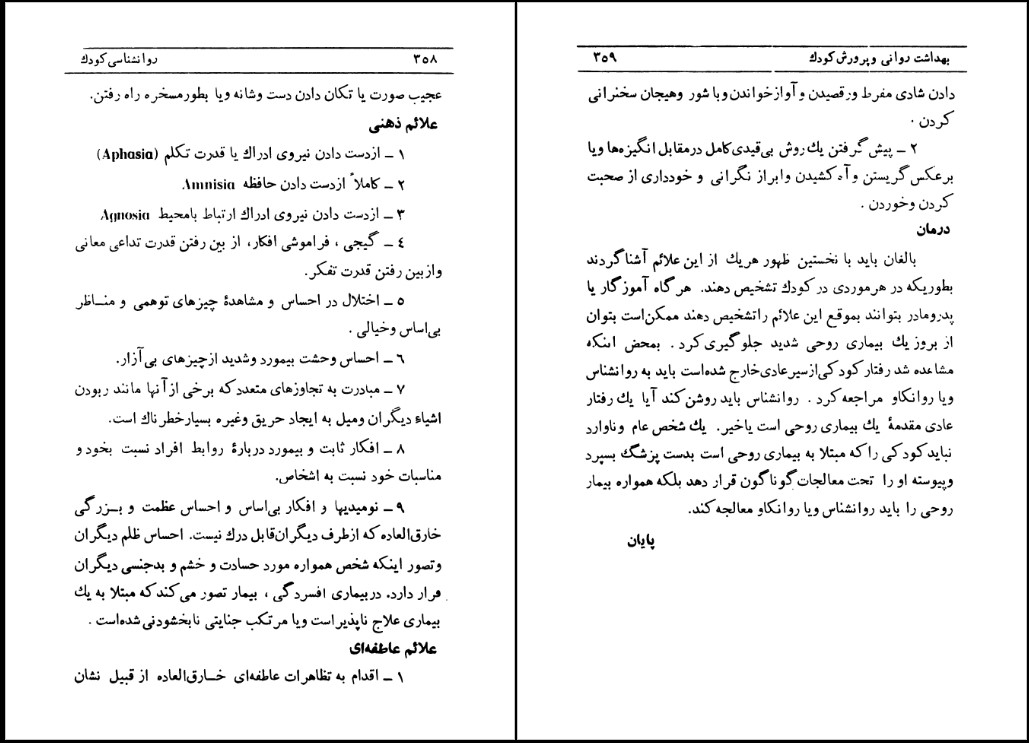 روانشناسی کودك ۳۵۸
عجیب صورت یا تکان دادن دست وشانه ویا بطور مسخره راه رفتن.
علائم ذهنی
۱ ـ ازدست دادن نیروی ادراك یا قدرت تکلم (Aphasia)
۲ ـ کاملاً ازدست دادن حافظه Amnisia.
۳ ـ ازدست دادن نیروی ادراك ارتباط بامحیط Agnosia
٤ ـ گیجی ، فراموشی افکار، از بین رفتن قدرت تداعی معانی
وازبین رفتن قدرت تفکر.
۵ ـ اختلال در احساس و مشاهدهٔ چیزهای توهمی و منـاظر
بی‌اساس وخیالی .
۶ ـ احساس وحشت بیمورد وشدید ازچیزهای بی‌آزار.
۷ ـ مبادرت به تجاوزهای متعددکه برخی ازآنها مانند ربودن
اشیاء دیگران ومیل به ایجاد حریق وغیره بسیارخطرناك است.
۸ ـ افکار ثابت و بیمورد دربارهٔ روابط افراد نسبت بخود و
مناسبات خود نسبت به اشخاص.
۹ ـ نومیدیها و افکار بی‌اساس و احساس عظمت و بــزرگی
خارق‌العاده که ازطرف دیگران‌قابل درك نیست. احساس ظلم دیگران
وتصور اینکه شخص همواره مورد حسادت و خشم و بدجنسی دیگران
قرار دارد. دربیماری افسردگی ، بیمار تصور می‌کندکه مبتلا به یك
بیماری علاج ناپذیراست ویا مرتکب جنایتی نابخشودنی شده‌است .
علائم عاطفه‌ای
۱ ـ اقدام به تظاهرات عاطفه‌ای خــارق‌العاده از قبیل نشان
بهداشت روانی و پرورش کودك ۳۵۹
دادن شادی مفرط ورقصیدن و آوازخواندن وبا شور وهیجان سخنرانی
کردن .
۲ ـ پیش گرفتن یك روش بی‌قیدی‌کامل درمقابل انگیزه‌ها ویا
برعکس گریستن و آه کشیدن وابراز نگرانی و خودداری از صحبت
کردن وخوردن .
درمان
بالغان باید با نخستین ظهور هریك از این علائم آشناگردند
بطوریکه در هرموردی درکودك تشخیص دهند. هرگاه آموزگار یا
پدرومادر بتوانند بموقع این علائم راتشخیص دهند ممکن‌است بتوان
از بروز یك بیماری روحی شدید جلوگیری کرد . بمحض اینکه
مشاهده شد رفتار کودکی‌ازسیرعادی‌خارج شده‌است باید به روانشناس
ویا روانکاو مراجعه‌کرد . روانشناس باید روشن‌کند آیا یك رفتار
عادی مقدمهٔ یك بیماری روحی است یاخیر. یك شخص عام وناوارد
نبایدکودکی راکه مبتلا به بیماری روحی است بدست پزشگ بسپرد
وپیوسته او را تحت معالجات‌گوناگون قرار دهد بلکه همواره بیمار
روحی را باید روانشناس ویا روانکاو معالجه‌کند.
پایان